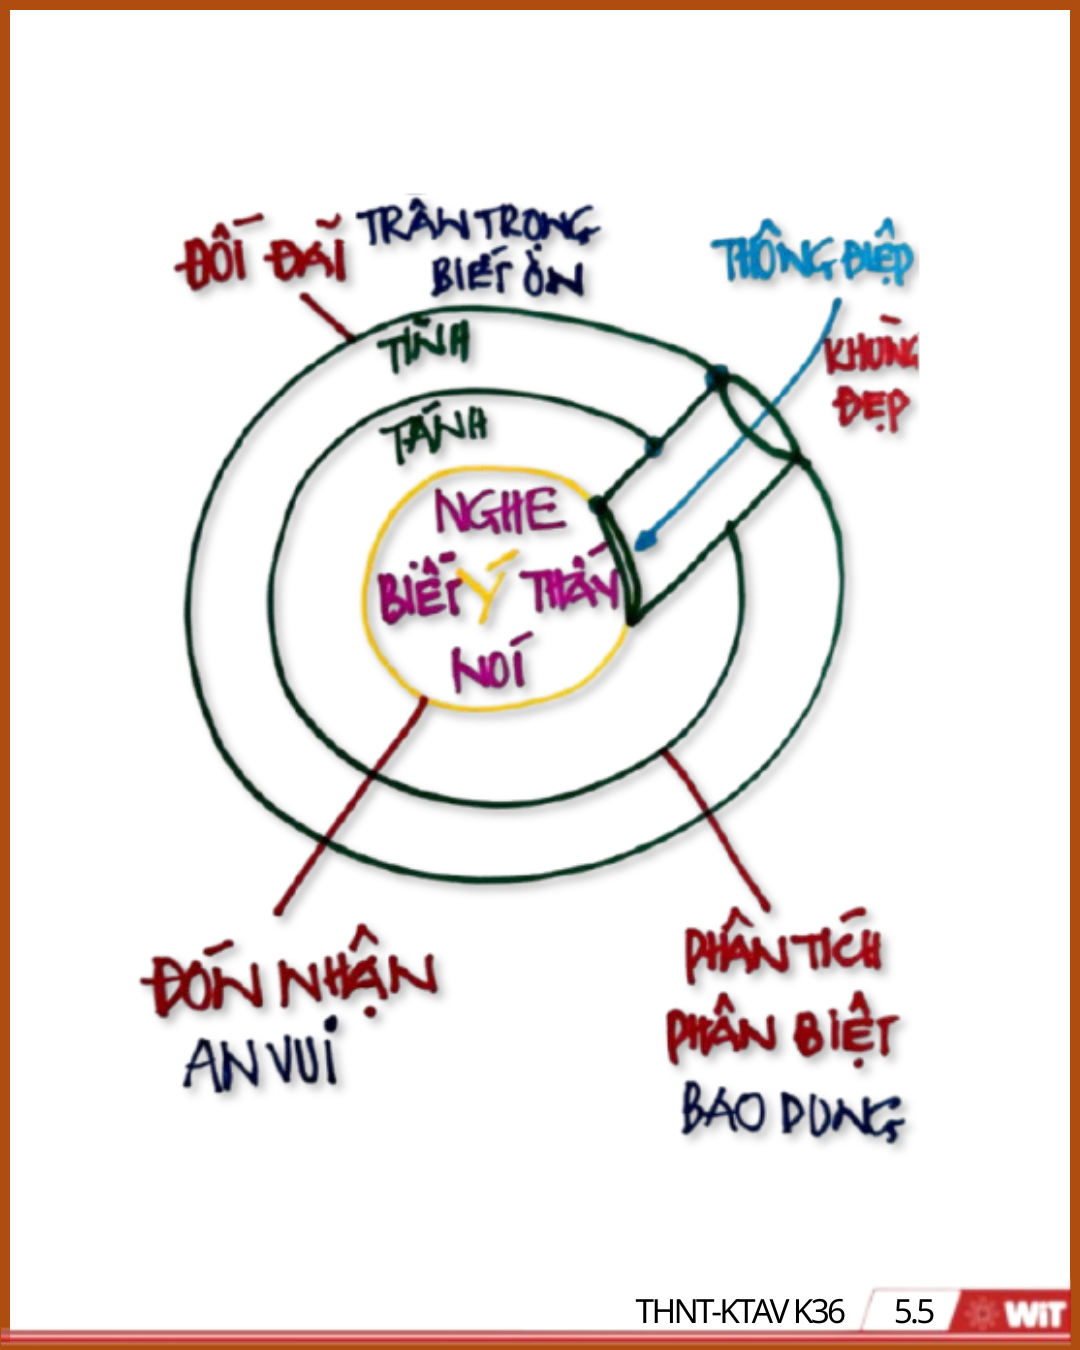 ĐỐI ĐÃI
TRÂN TRỌNG
BIẾT ƠN
THÔNG ĐIỆP
KHÙNG
ĐẸP
TÌNH
TÁNH
NGHE
BIẾT Ý THẤY
NÓI
ĐÓN NHẬN
AN VUI
PHÂN TÍCH
PHÂN BIỆT
BAO DUNG
THNT-KTAV K36 5.5 WiT